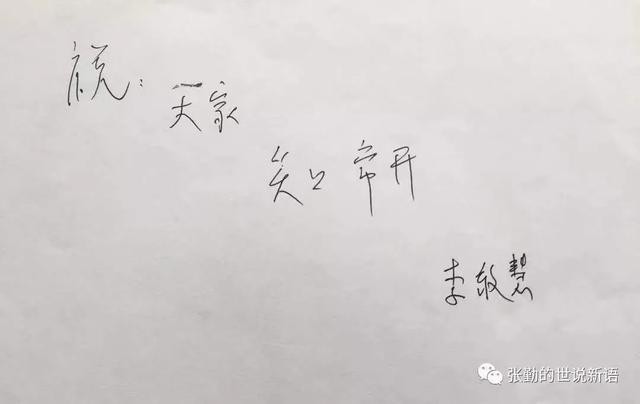 祝：
大家
笑口常开
李慧
张勤的世说新语